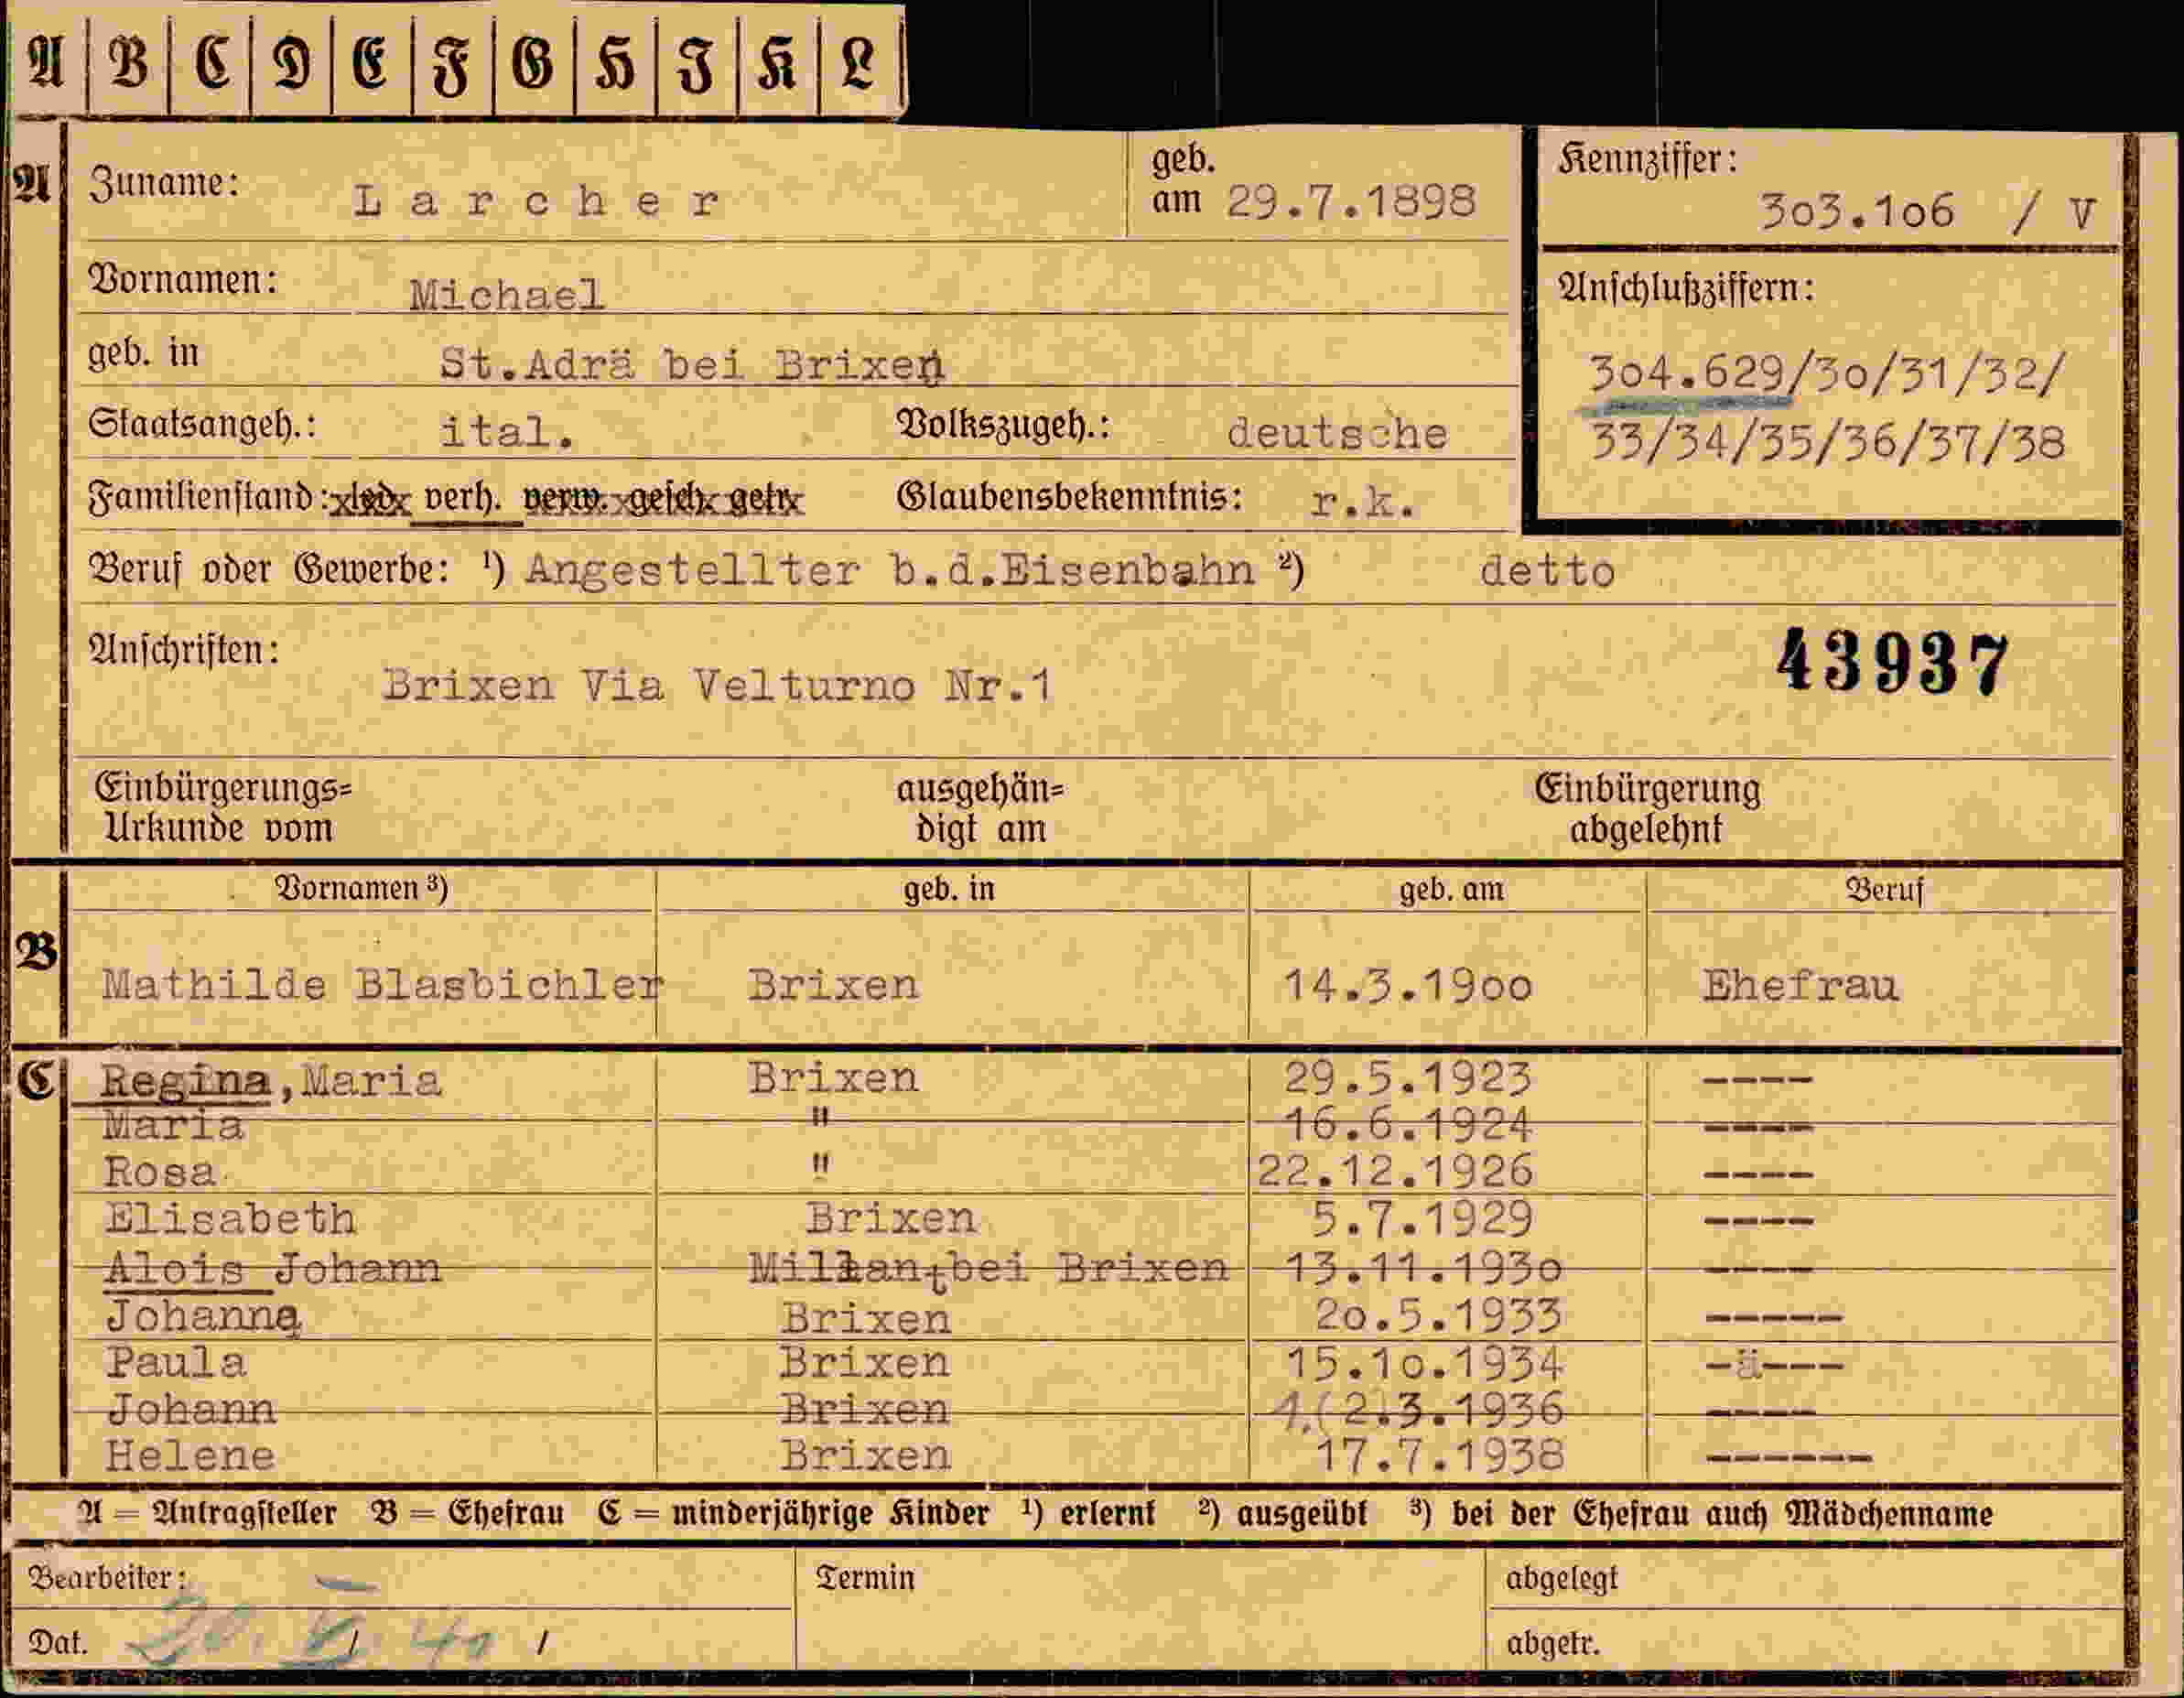 A B C D E F G H I K L
A Zuname: Larcher geb. am 29.7.1898 Kennziffer: 303.106 / V
Vornamen: Michael Anschlußziffern:
geb. in St.Adrä bei Brixen 304.629/30/31/32/
Staatsangeh.: ital. Volkszugeh.: deutsche 33/34/35/36/37/38
Familienstand: led. verh. verw. gesch. getr. Glaubensbekenntnis: r.k.
Beruf oder Gewerbe: ¹) Angestellter b.d.Eisenbahn ²) detto
Anschriften: 43937
Brixen Via Velturno Nr.1
Einbürgerungs= ausgehän= Einbürgerung
Urkunde vom digt am abgelehnt
Vornamen ³) geb. in geb. am Beruf
B Mathilde Blasbichler Brixen 14.3.1900 Ehefrau
C Regina,Maria Brixen 29.5.1923 ----
Maria " 16.6.1924 ----
Rosa " 22.12.1926 ----
Elisabeth Brixen 5.7.1929 ----
Alois Johann bei Brixen 13.11.1930 ----
Johanna Brixen 20.5.1933 -----
Paula Brixen 15.10.1934 -ä---
Johann Brixen 1.(2.3.1936 ----
Helene Brixen 17.7.1938 ------
A = Antragsteller B = Ehefrau C = minderjährige Kinder ¹) erlernt ²) ausgeübt ³) bei der Ehefrau auch Mädchenname
Bearbeiter: Termin abgelegt
Dat. 20. / 40 / abgetr.